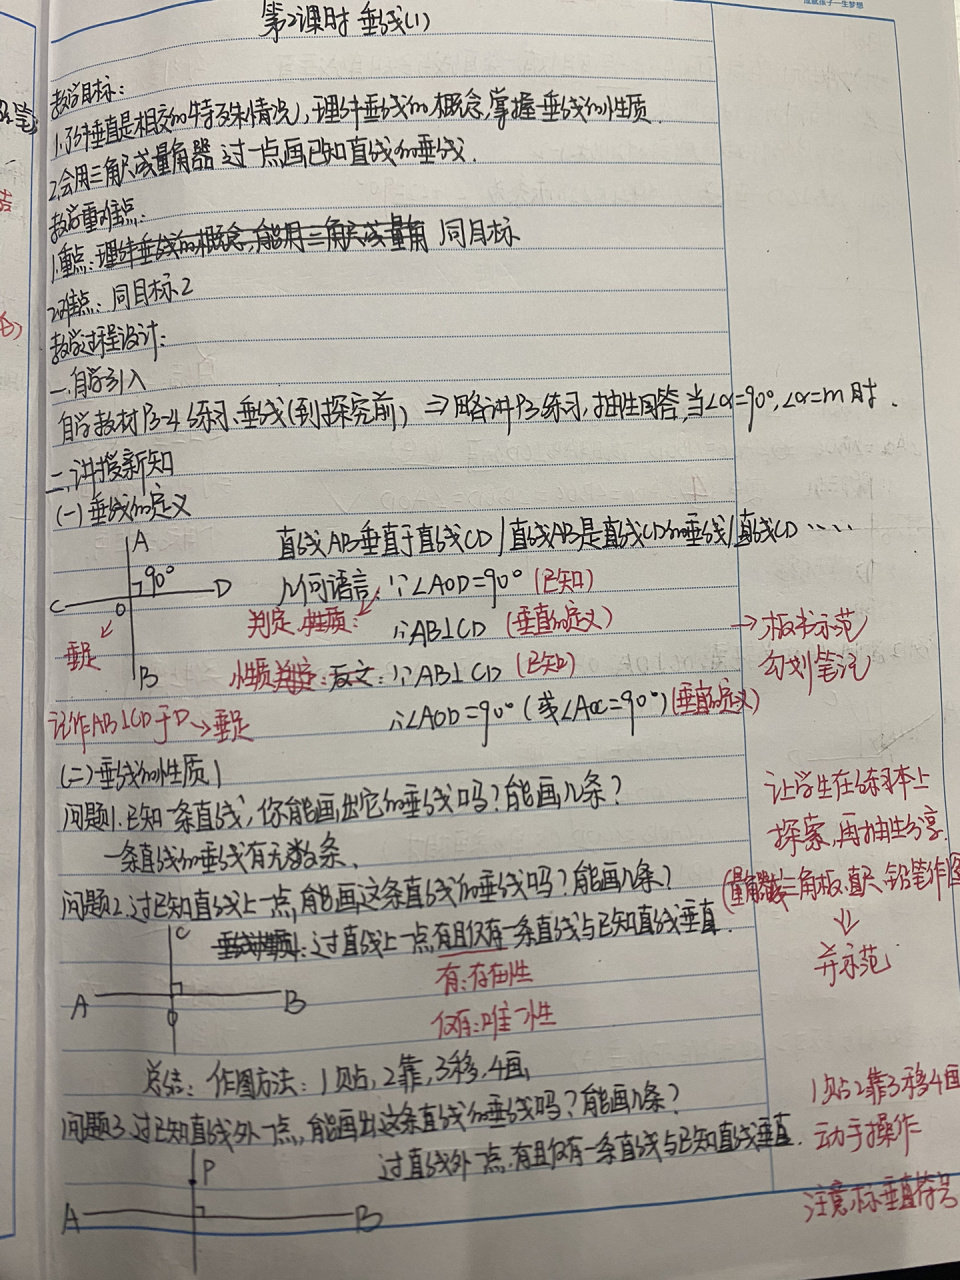 成就孩子一生梦想
第2课时 垂线(1)
教学目标:
1.了解垂直是相交的特殊情况,理解垂线的概念,掌握垂线的性质.
2.会用三角尺或量角器过一点画已知直线的垂线.
教学重难点:
1.重点:理解垂线的概念,能用三角尺或量角 同目标
2.难点:同目标2
教学过程设计:
一.自学引入
自学教材P3-4练习.垂线(到探究前) ⇒略讲P3练习,抽生回答,当∠α=90°,∠α=m时.
二.讲授新知
(一)垂线的定义
直线AB垂直于直线CD/直线AB是直线CD的垂线/直线CD ……
A
90°
C
O
D
B
垂足
几何语言:∵∠AOD=90°(已知)
判定.性质:
∴AB⊥CD (垂直的定义)
→板书示范
勾划笔记
性质判定:反之:∵AB⊥CD (已知)
记作AB⊥CD于D→垂足
∴∠AOD=90°(或∠AOC=90°)(垂直的定义)
(二)垂线的性质1
问题1.已知一条直线,你能画出它的垂线吗?能画几条?
一条直线的垂线有无数条.
让学生在练习本上
探索,再抽生分享.
问题2.过已知直线上一点,能画这条直线的垂线吗?能画几条?
三角板.直尺.铅笔作图
⇓
并示范
过直线上一点,有且仅有一条直线与已知直线垂直.
有:存在性
仅有:唯一性
C
A
B
总结:作图方法:1贴,2靠,3移,4画
问题3.过已知直线外一点,能画出这条直线的垂线吗?能画几条?
过直线外一点,有且仅有一条直线与已知直线垂直.
P
A
B
1贴2靠3移4画
动手操作
注意标垂直符号